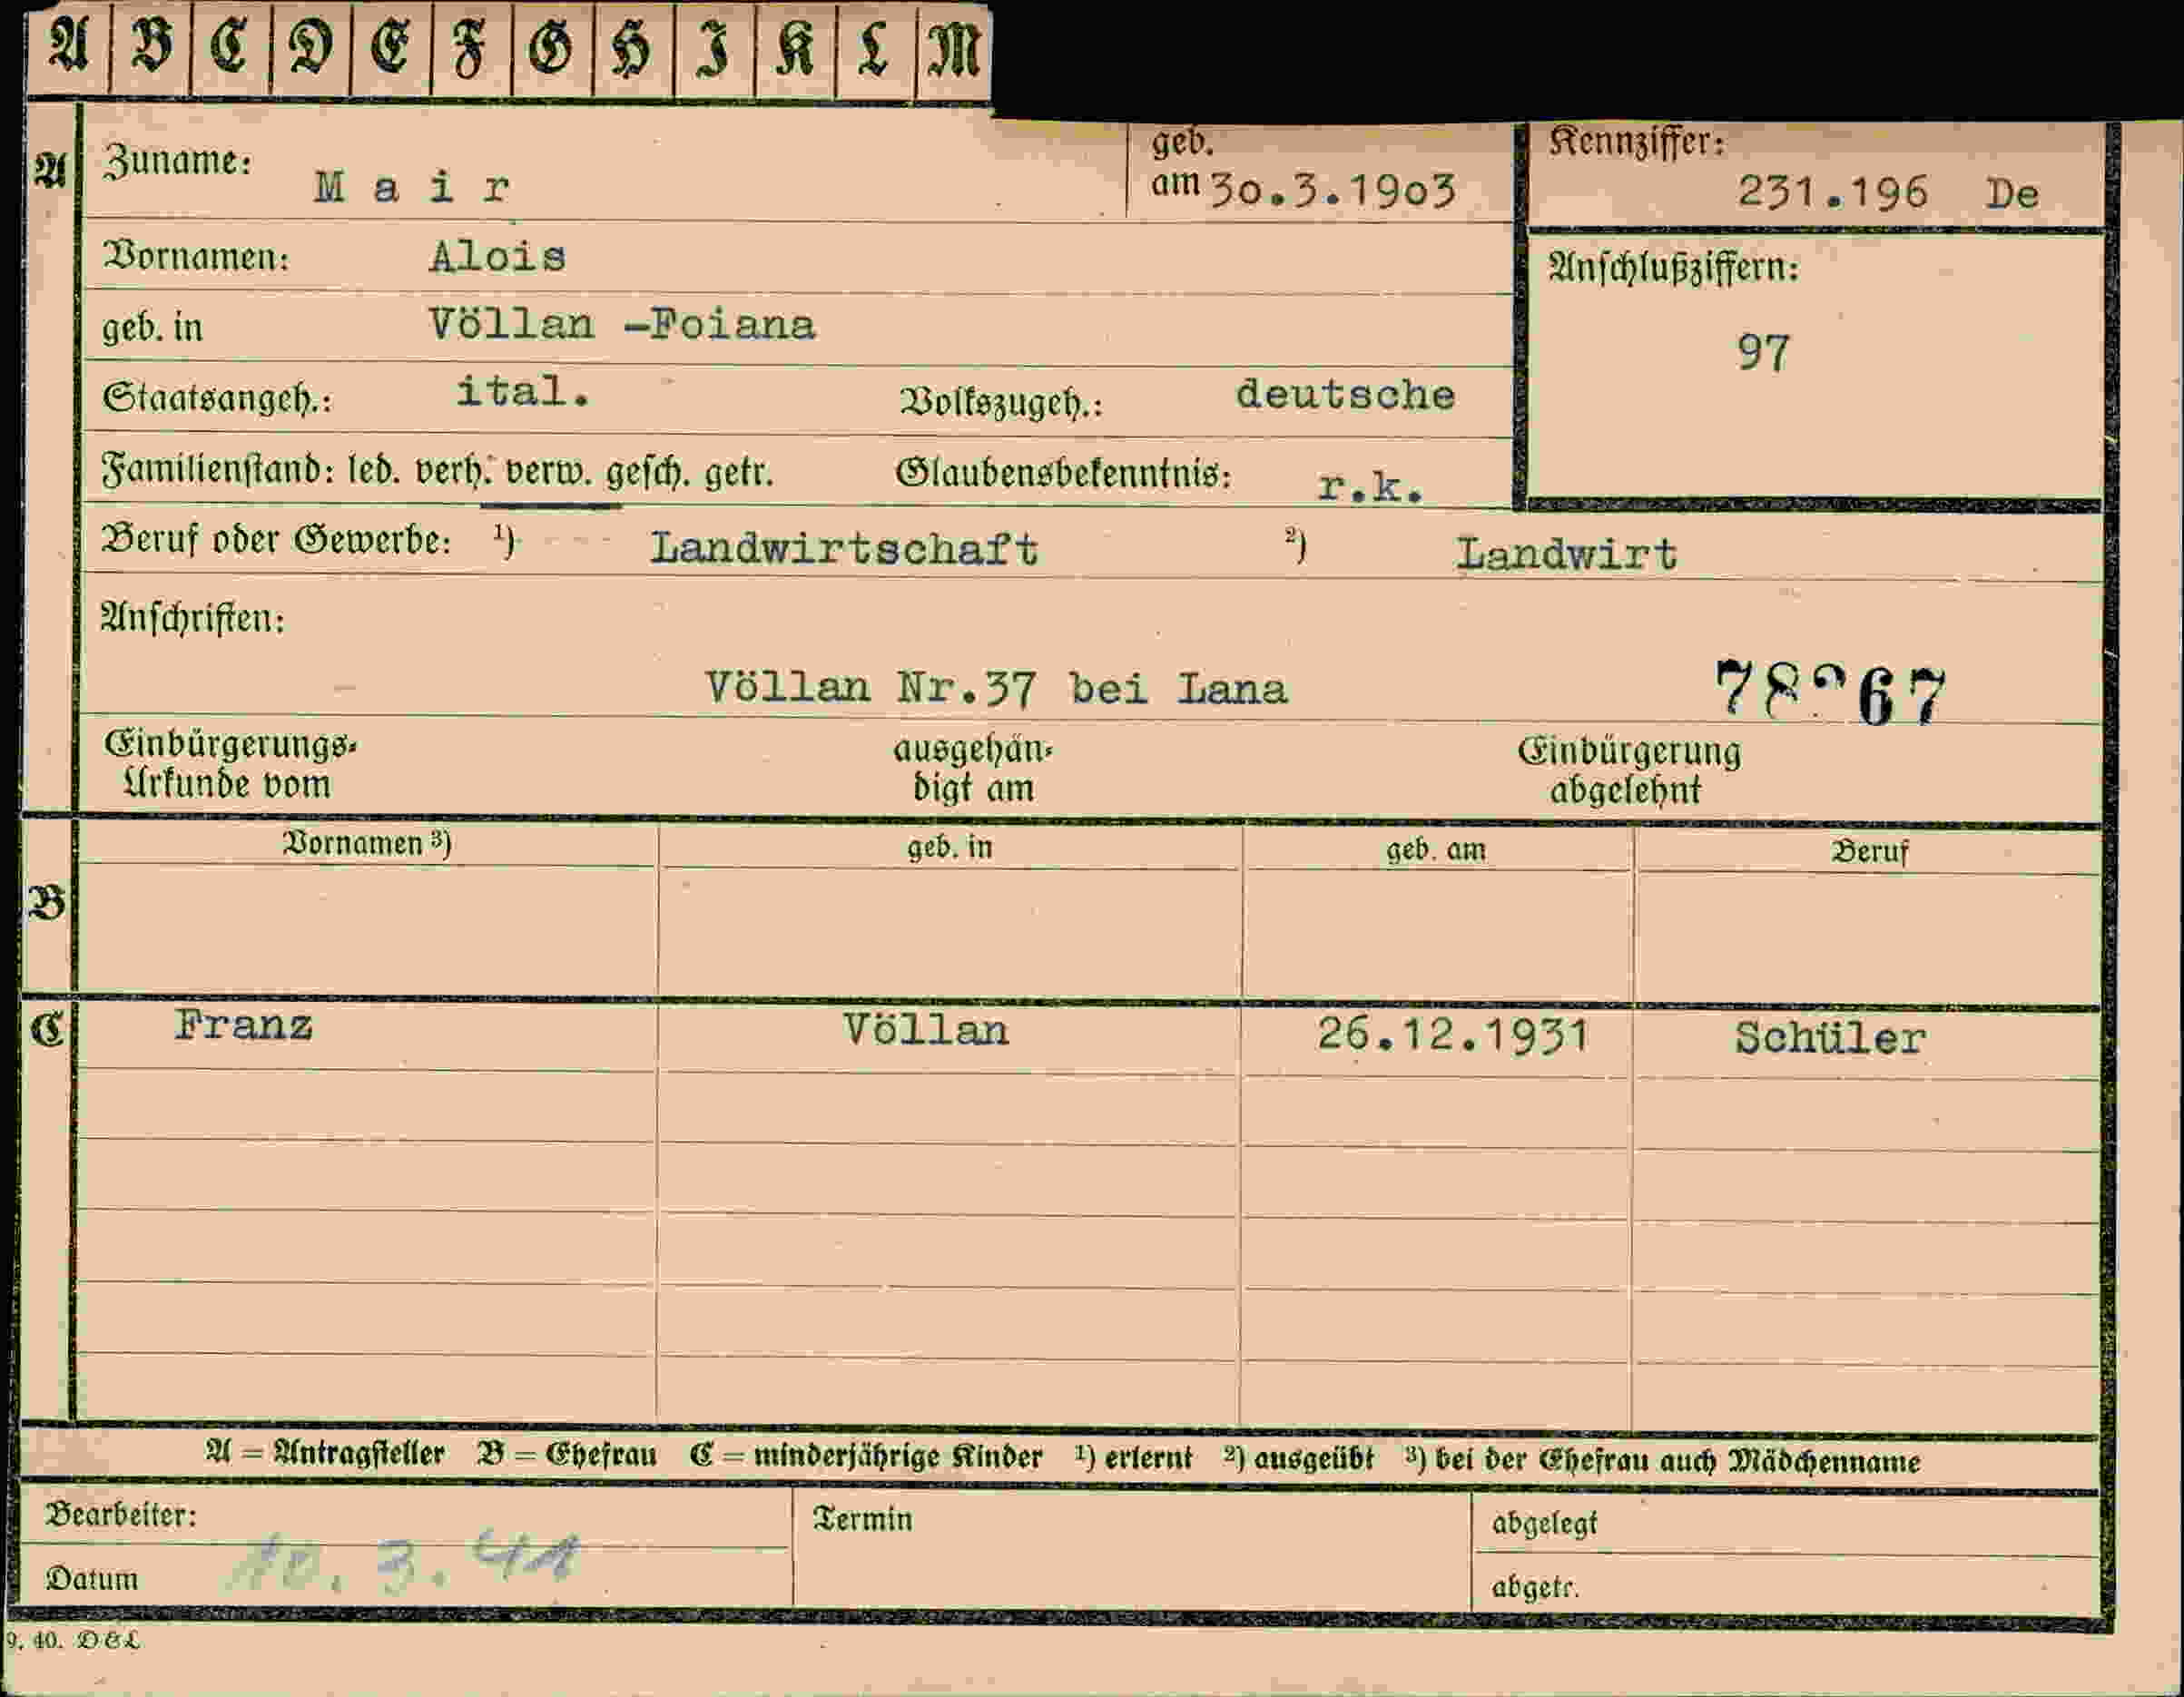 A B C D E F G H I K L M
A
Zuname: Mair
geb. am 30.3.1903
Kennziffer: 231.196 De
Vornamen: Alois
Anschlußziffern: 97
geb. in Völlan -Foiana
Staatsangeh.: ital. Volkszugeh.: deutsche
Familienstand: led. verh. verw. gesch. getr. Glaubensbekenntnis: r.k.
Beruf oder Gewerbe: 1) Landwirtschaft 2) Landwirt
Anschriften:
Völlan Nr.37 bei Lana
Einbürgerungs-
Urkunde vom
ausgehän-
digt am
Einbürgerung
abgelehnt
Vornamen 3) geb. in geb. am Beruf
B
C Franz Völlan 26.12.1931 Schüler
A = Antragsteller B = Ehefrau C = minderjährige Kinder 1) erlernt 2) ausgeübt 3) bei der Ehefrau auch Mädchenname
Bearbeiter: Termin abgelegt
Datum 10.3.41 abgetr.
9. 40. D&L